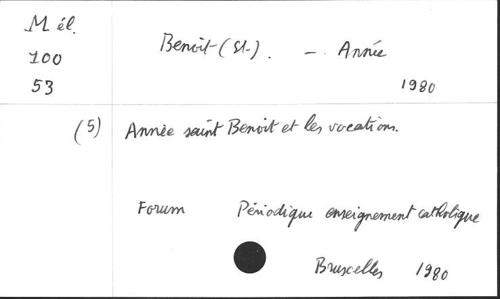 M él.
100
53
Benoit (St.). - Année
1980
(5) Année saint Benoit et les vocations.
Forum Périodique enseignement catholique
Bruxelles 1980